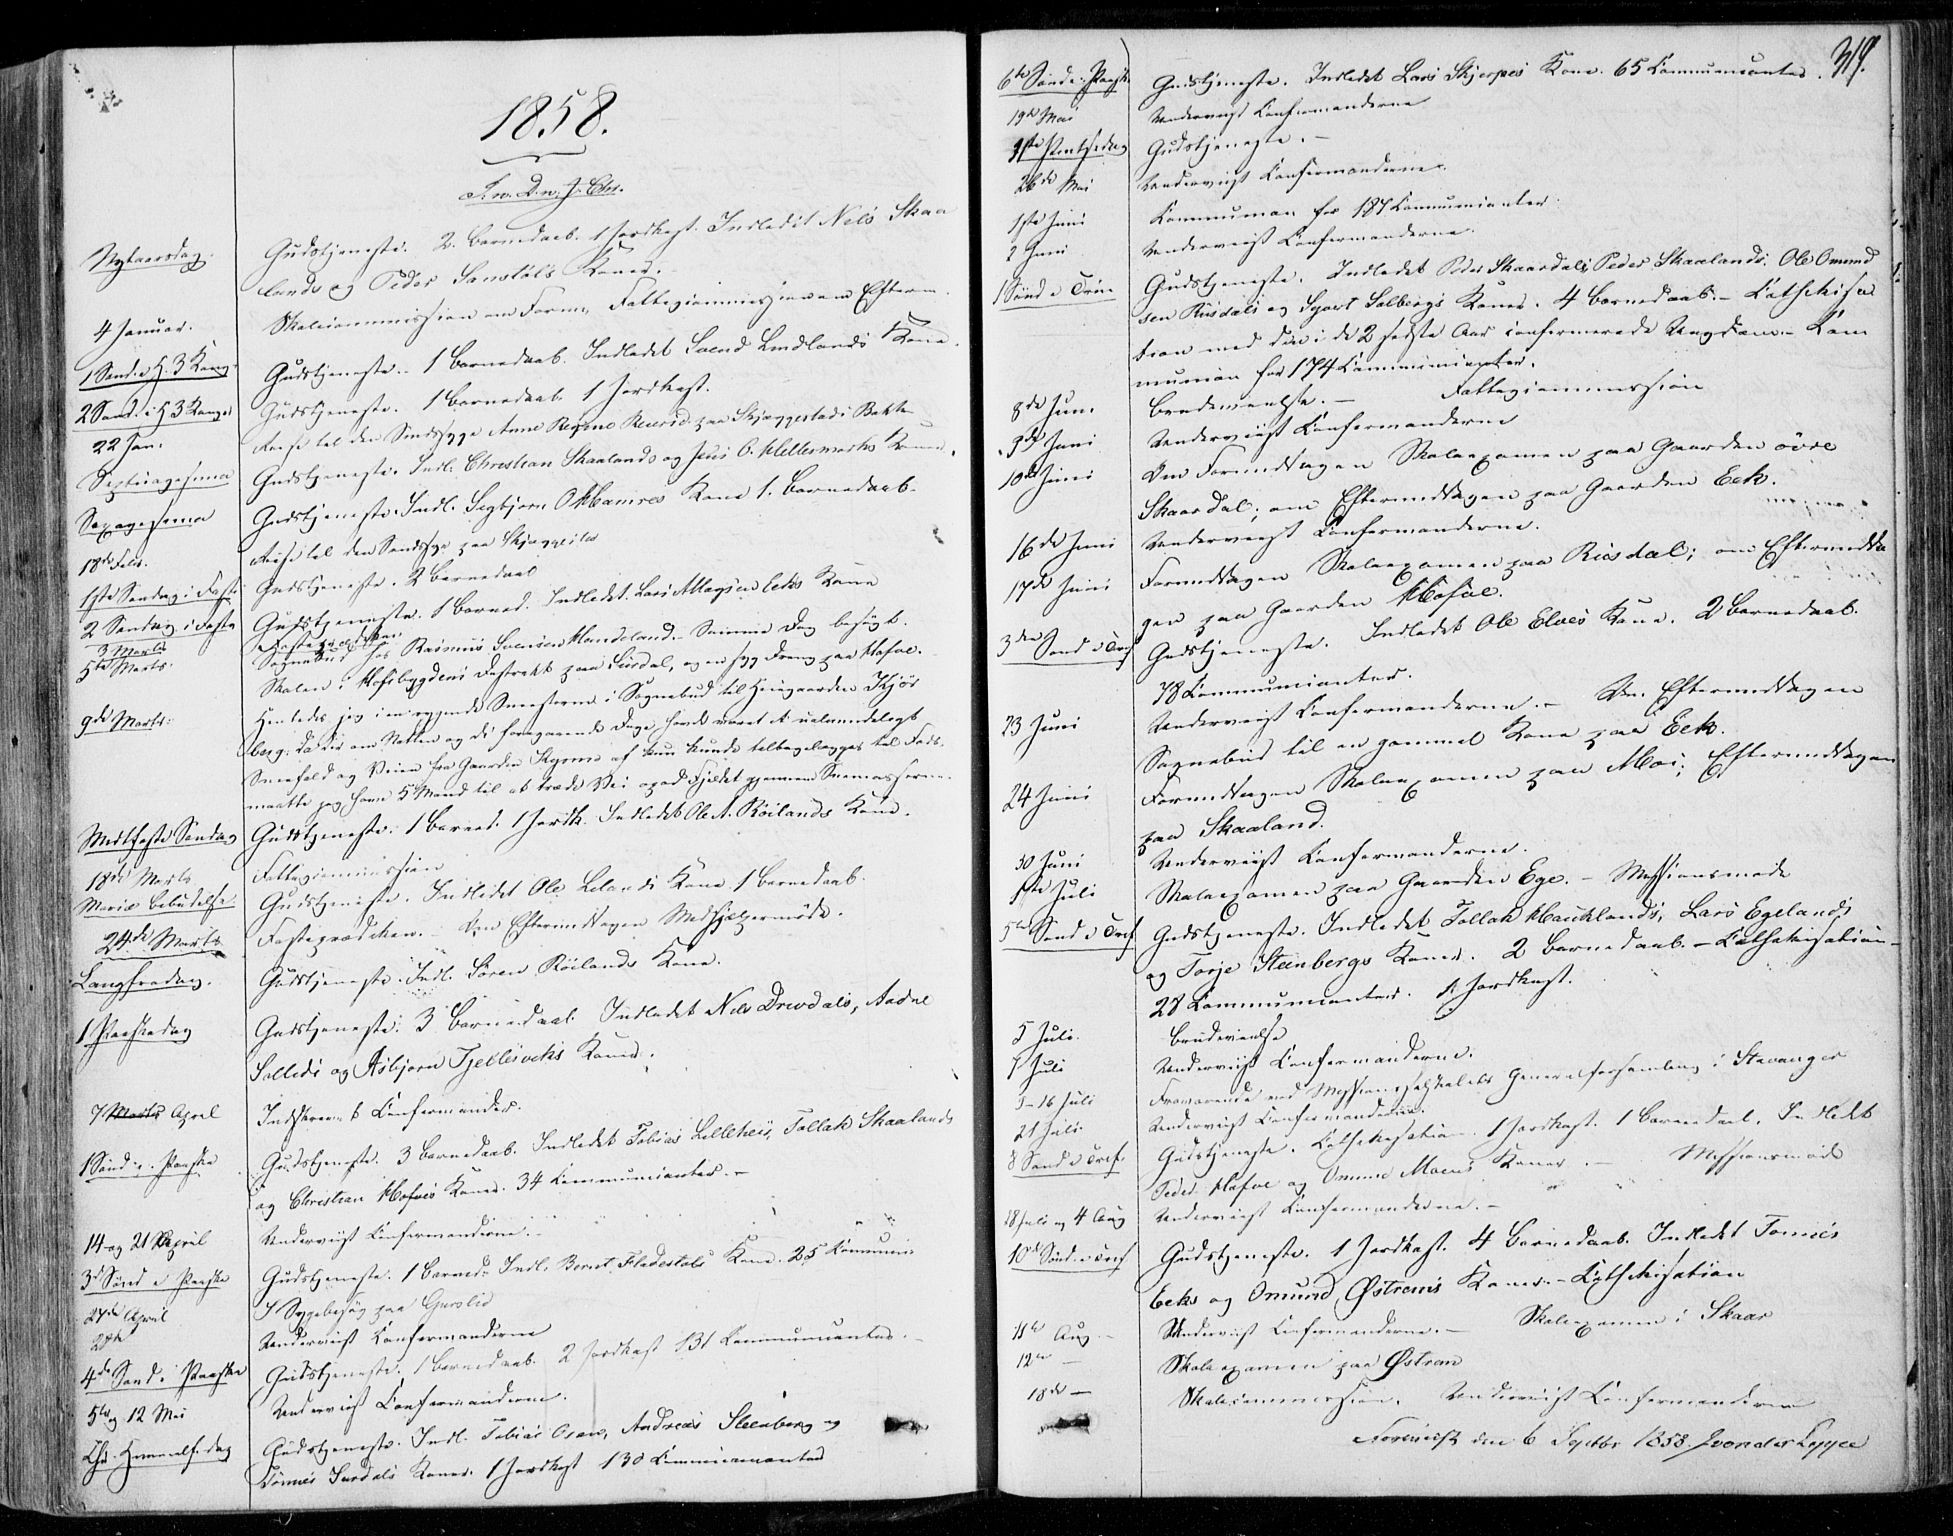 1858.
I. n. D. n. J. Chr.
Nytaarsdag. Gudstjeneste. 2 Barnedaab. 1 Jordkast. Indledet Nels Skaa
lands og Peder Koner.
4 Januar. Skolecommission om Form. Fattigcommission om Efterm.
1 Sønd. e. H. 3 Kong. Gudstjeneste. 1 Barnedaab. Indledet Svend Lindlands Kone.
2 Sønd. e. H. 3 Konger Gudstjeneste. 1 Barnedaab 1 Jordkast.
22 Jan. Reise til den Sindssyge Anne Regine paa Skjeggestad i Bakke
Septuagesima Gudstjeneste. Indl. Christian Skaalands og Jens O. Koner.
Sexagesima Gudstjeneste. Indl. Sigbjørn O. Kone 1 Barnedaab.
18de Febr. Reise til den Sindssyge paa Skjeggested
1ste Søndag i Faste Gudstjeneste. 2 Barnedaab
2 Søndag i Faste Gudstjeneste. 1 Barned. Indledet Lars Eeks Kone
3 Marts Fasteprædiken
5te Marts. Sognebud hos Rasmus Svensen Handeland. Samme Dag besøgt
Skolen i Hofsbygdens Distrikt paa Suusdal, og en syg Dreng paa Hafsøe.
9de Marts: Henledes jeg i en rygende Sneestorm i Sognebud til Heiegaarden Kjørs
berg; da der om Natten og de foregaaende Dage havde været et ualmindeligt
Sneefald og Veien fra Gaarden af kun kunde tilbagelægges til Fods,
maatte jeg have 5 Mand til at træde Vei opad Fjeldet gjennem Sneemasserne.
Midtfaste Søndag Gudstjeneste. 1 Barned. 1 Jordk. Indledet Ole A. Røilands Kone.
18de Marts Fattigcommission
Mariæ Bebudelse Gudstjeneste. Indledet Ole Lelands Kone 1 Barnedaab.
24de Marts Fasteprædiken. Om Eftermiddagen Medhjelpermøde.
Langfredag. Gudstjeneste. Indl. Søren Røilands Kone.
1 Paaskedag Gudstjeneste. 3 Barnedaab. Indledet Nels Drivdals, Aadne
Solleds og Asbjørn Tjetlesveks Koner.
7 Marts April Indskreven 6 Confirmander.
1 Sønd. e. Paaske Gudstjeneste. 3 Barnedaab. Indledet Tobias Lilleheis, Tollak Skaalands
og Christian Hafsøes Koner. 34 Communicanter. –
14 og 21 April Underviist Confirmanderne. –
3d Sønd e Paaske Gudstjeneste. 1 Barned. Indl. Bernt Fladestøls Kone. 25 Communic.
27de April 1 Sygebesøg paa
28de Underviist Confirmanderne
4de Sønd e Paaske Gudstjeneste. 1 Barnedaab. 2 Jordkast 131 Communicanter. –
5te og 12 Mai Underviist Confirmanderne.
Chr. Himmelf. dag Gudstjeneste. Indl. Tobias Andreas Steenberg og
Tønnes Suusdals Koner. 1 Jordkast 130 Communicanter
319.
6te Sønd e. Paaske Gudstjeneste. Indledet Lars Skjerpes Kone. 65 Communicanter.
19de Mai Underviist Confirmanderne
1ste Pintsedag Gudstjeneste. –
26de Mai Underviist Confirmanderne.
1ste Juni Communion for 187 Communicanter.
2 Juni Underviist Confirmanderne.
1 Sønd e Trin Gudstjeneste. Indledet Peder Skaardals, Peder Skaalands, Ole Omund
sen Ruusdals og Sivert Solbergs Koner. 4 Barnedaab. – Cathechisa
tion med den i de 2 sidste Aar confirmerede Ungdom. – Com
munion for 174 Communicanter.
8de Juni Brudevielse. – Fattigcommission
9de Juni Underviist Confirmanderne
10de Juni Om Formiddagen Skoleexamen paa Gaarden øvre
Skaardal; om Eftermiddagen paa Gaarden Eek.
16de Juni Underviist Confirmanderne.
17de Juni Formiddagen Skoleexamen paa Ruusdal; om Eftermidda
gen paa Gaarden Hafsøe.
3die Sønd e Tref Gudstjeneste. Indledet Ole Elves Kone. 2 Barnedaab.
78 Communicanter.
23 Juni Underviist Confirmanderne. – Om Eftermiddagen
Sognebud til en gammel Kone paa Eek.
24 Juni Formiddagen Skoleexamen paa Moi; Eftermiddagen
paa Skaaland.
30 Juni Underviist Confirmanderne.
1ste Juli Skoleexamen paa Gaarden Ege. – Missionsmøde
5te Sønd e Tref Gudstjeneste. Indledet Tollak Haucklands, Lars Egelands
og Torje Steenbergs Koner. 2 Barnedaab. – Cathekisation –
28 Communicanter. 1 Jordkast.
5 Juli. Brudevielse
7 Juli Underviist Confirmanderne.
– 16 Juli Fraværende ved Missionsselskabets Generalforsamling i Stavanger
21 Juli Underviist Confirmanderne.
8 Sønd e Tref. Gudstjeneste. Cathekisation. 1 Jordkast. 1 Barnedaab. Indledet
Peder Hafsøe og Omund Moens Koner. – Missionsmøde
28 Juli og 4 Aug Underviist Confirmanderne. –
10de Sønd. e Tref Gudstjeneste. 1 Jordkast. 4 Barnedaab. Indledet Tønnes
Eeks og Omund Østrems Koner. – Cathekisation
11te Aug. – Underviist Confirmanderne. – Skoleexamen i Skaar
12te – Skoleexamen paa Østrem
18de – Skolecommission. Underviist Confirmanderne
Foreviist den 6 Septbr 1858. J von der Lippe